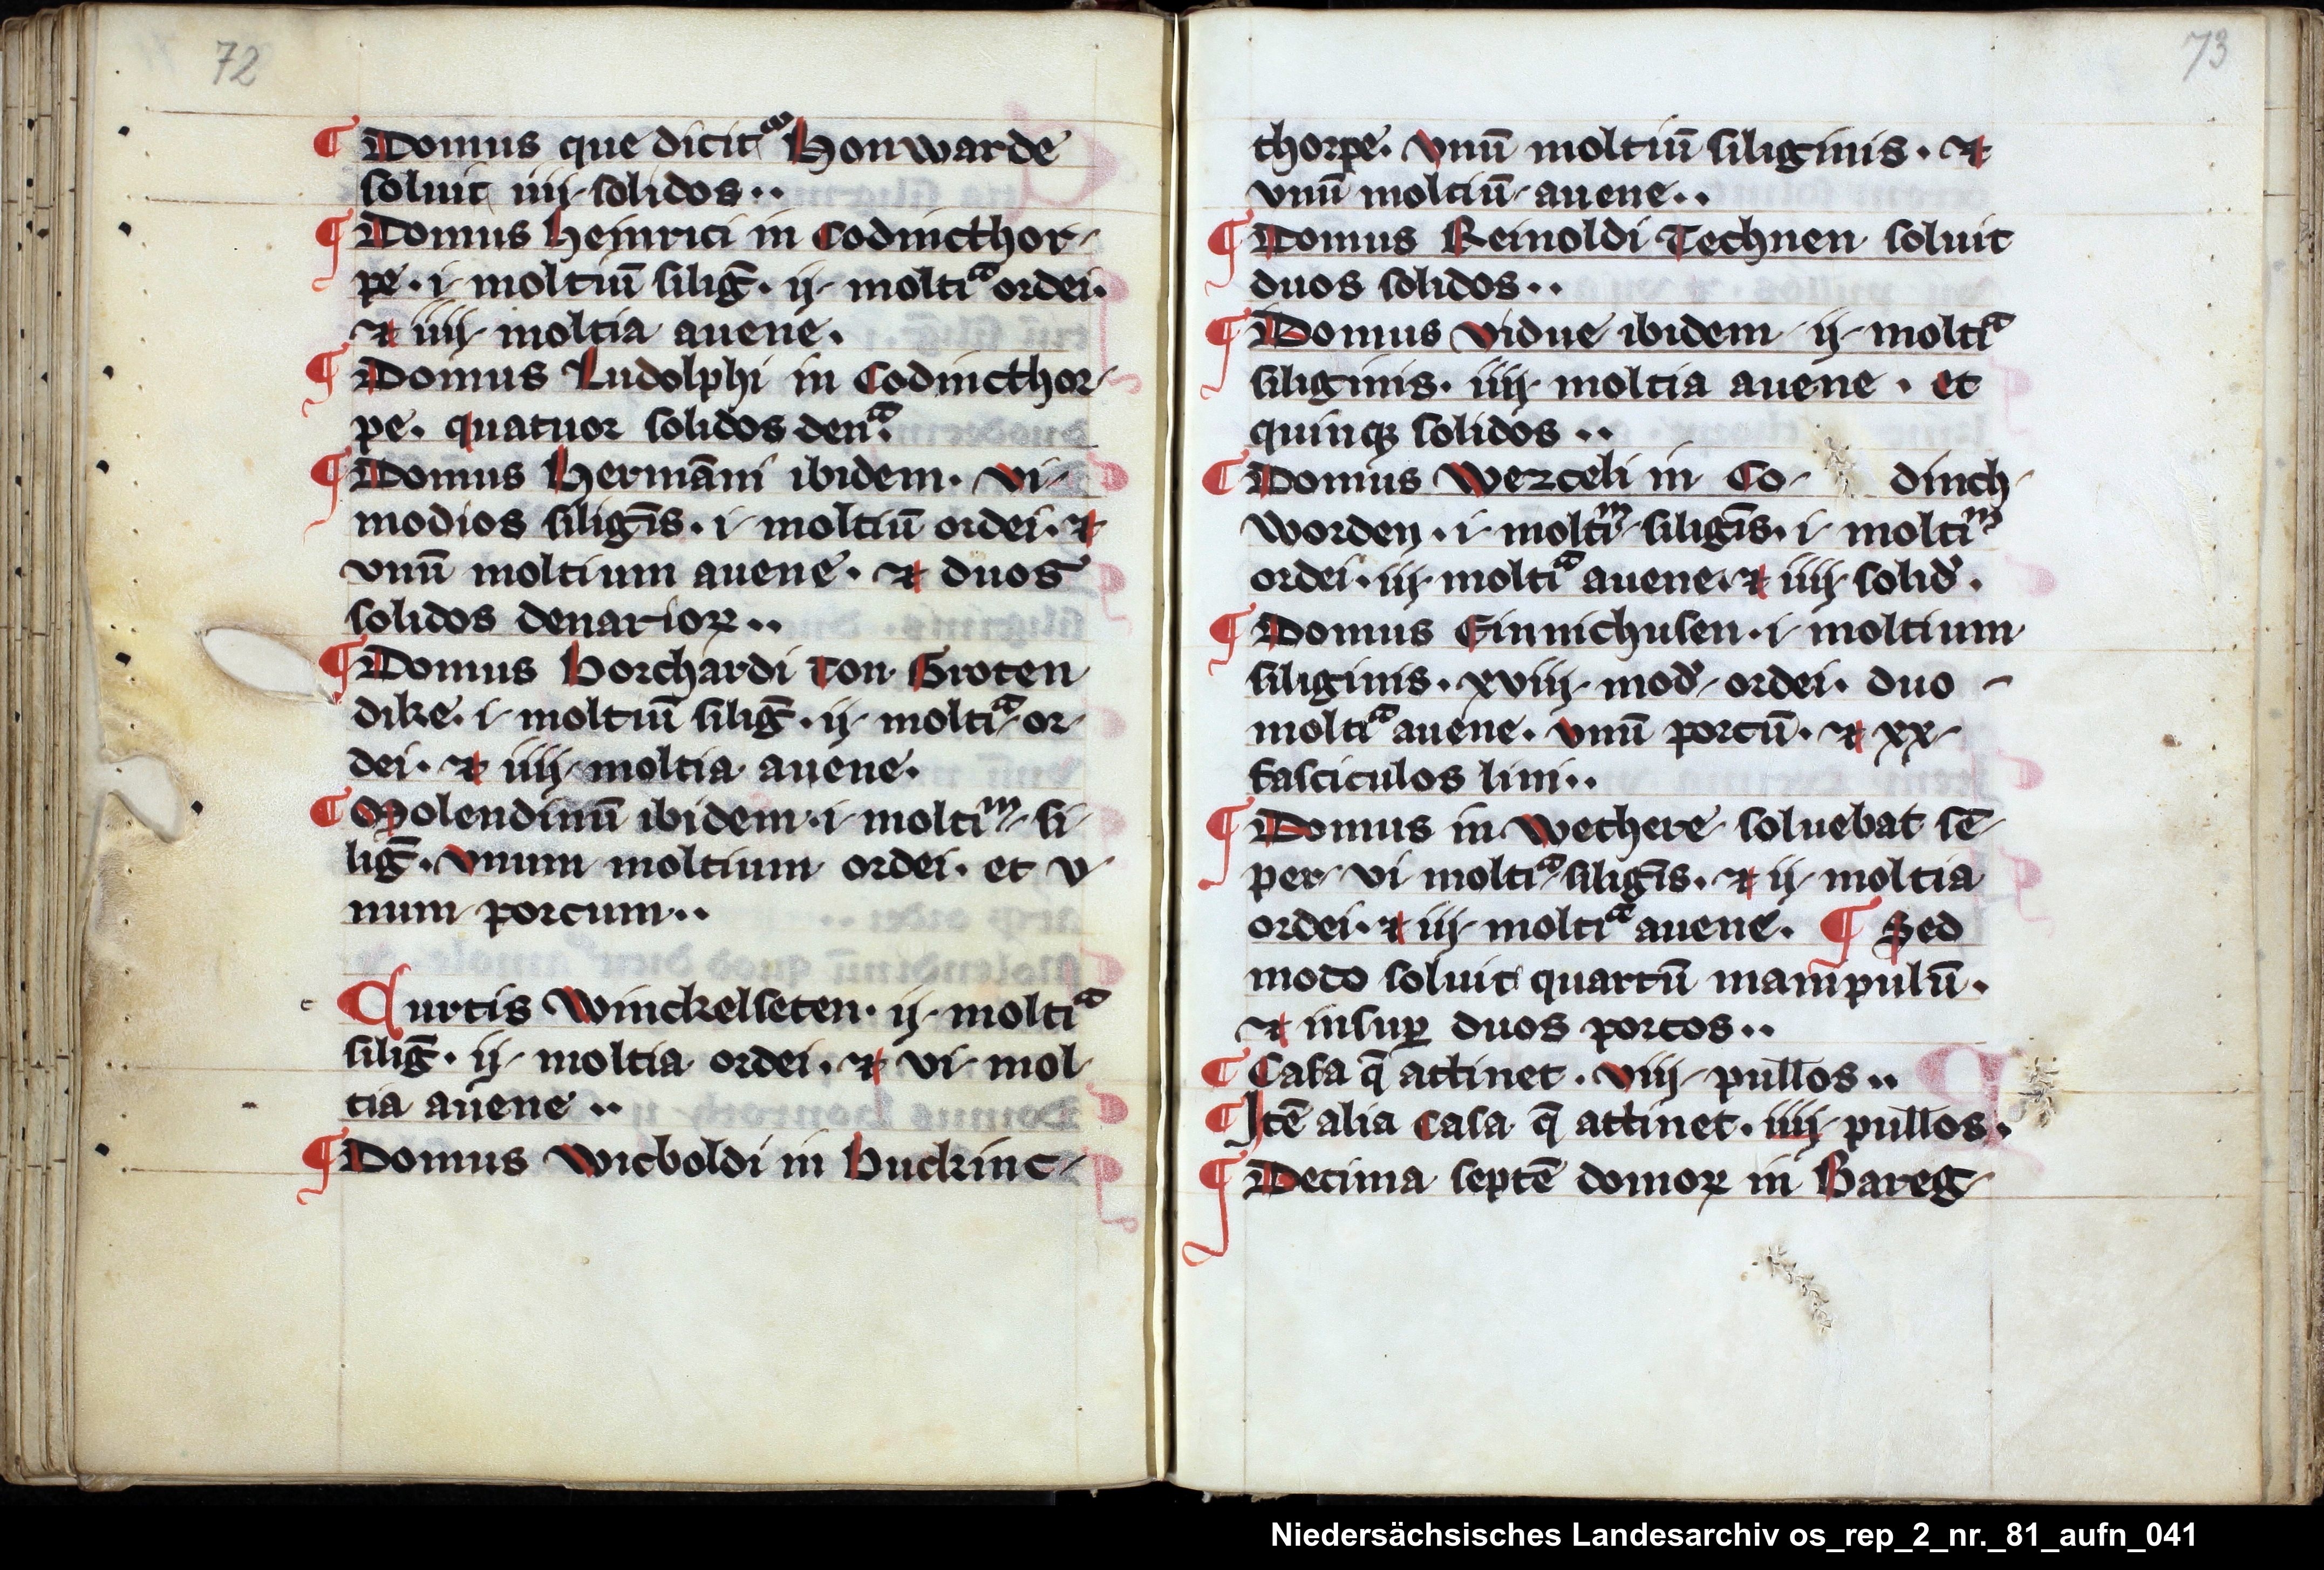 72
¶ Domus que dicitᷓ Honwarde
soluit iiij solidos..
¶ Domus Heynrici in Codincthor-
pe. i. moltiū silig̅. ij. moltiᵃ ordei.
⁊ iiij moltia auene.
¶ Domus Ludolphi in Codincthor-
pe. quatuor solidos denᵃ.
¶ Domus Hermāni ibidem. vi
modios siligīs. i. moltiū ordei. ⁊
vnū moltium auene. ⁊ duos
solidos denarioꝝ..
¶ Domus Borchardi ton Groten
dike. i. moltiū silig̅. ij. moltiᵃ or-
dei. ⁊ iiij moltia auene.
¶ Molendinū ibidem. i. moltiᵐ si-
lig̅. vnum moltium ordei. et v-
num porcum..
c
Curtis Winckelseten. ij. moltiᵃ
silig̅. ij. moltia ordei. ⁊ vi. mol-
tia auene..
¶ Domus Wicboldi in Buckinc-
73
thorpe. vnū moltiū siliginis. ⁊
vnū moltiū auene..
¶ Domus Reinoldi Technen soluit
duos solidos..
¶ Domus vidue ibidem ij. moltiᵃ
siliginis. iiij. moltia auene. et
quinqꝫ solidos..
¶ Domus Wezceli in Co- dinch-
worden. i. moltiᵐ siligīs. i. moltiᵐ
ordei. iij. moltiᵃ auene. ⁊ iiij solid̉.
¶ Domus Einnichusen. i. moltium
siliginis. xviij. mod̉ ordei. duo -
moltiᵃ auene. vnū porcū. ⁊ xx
fasciculos lini..
¶ Domus in Wechere soluebat sē-
per vi moltiᵃ siligīs. ⁊ ij. moltia
ordei. ⁊ iij. moltiᵃ auene. ¶ Sed
modo soluit quartū manipulū.
⁊ insuꝑ duos porcos..
¶ Casa q̄ attinet. viij pullos..
¶ Itē alia casa q̄ attinet. iiij pullos.
¶ Decima septē domoꝝ in Bareg-
Niedersächsisches Landesarchiv os_rep_2_nr._81_aufn_041